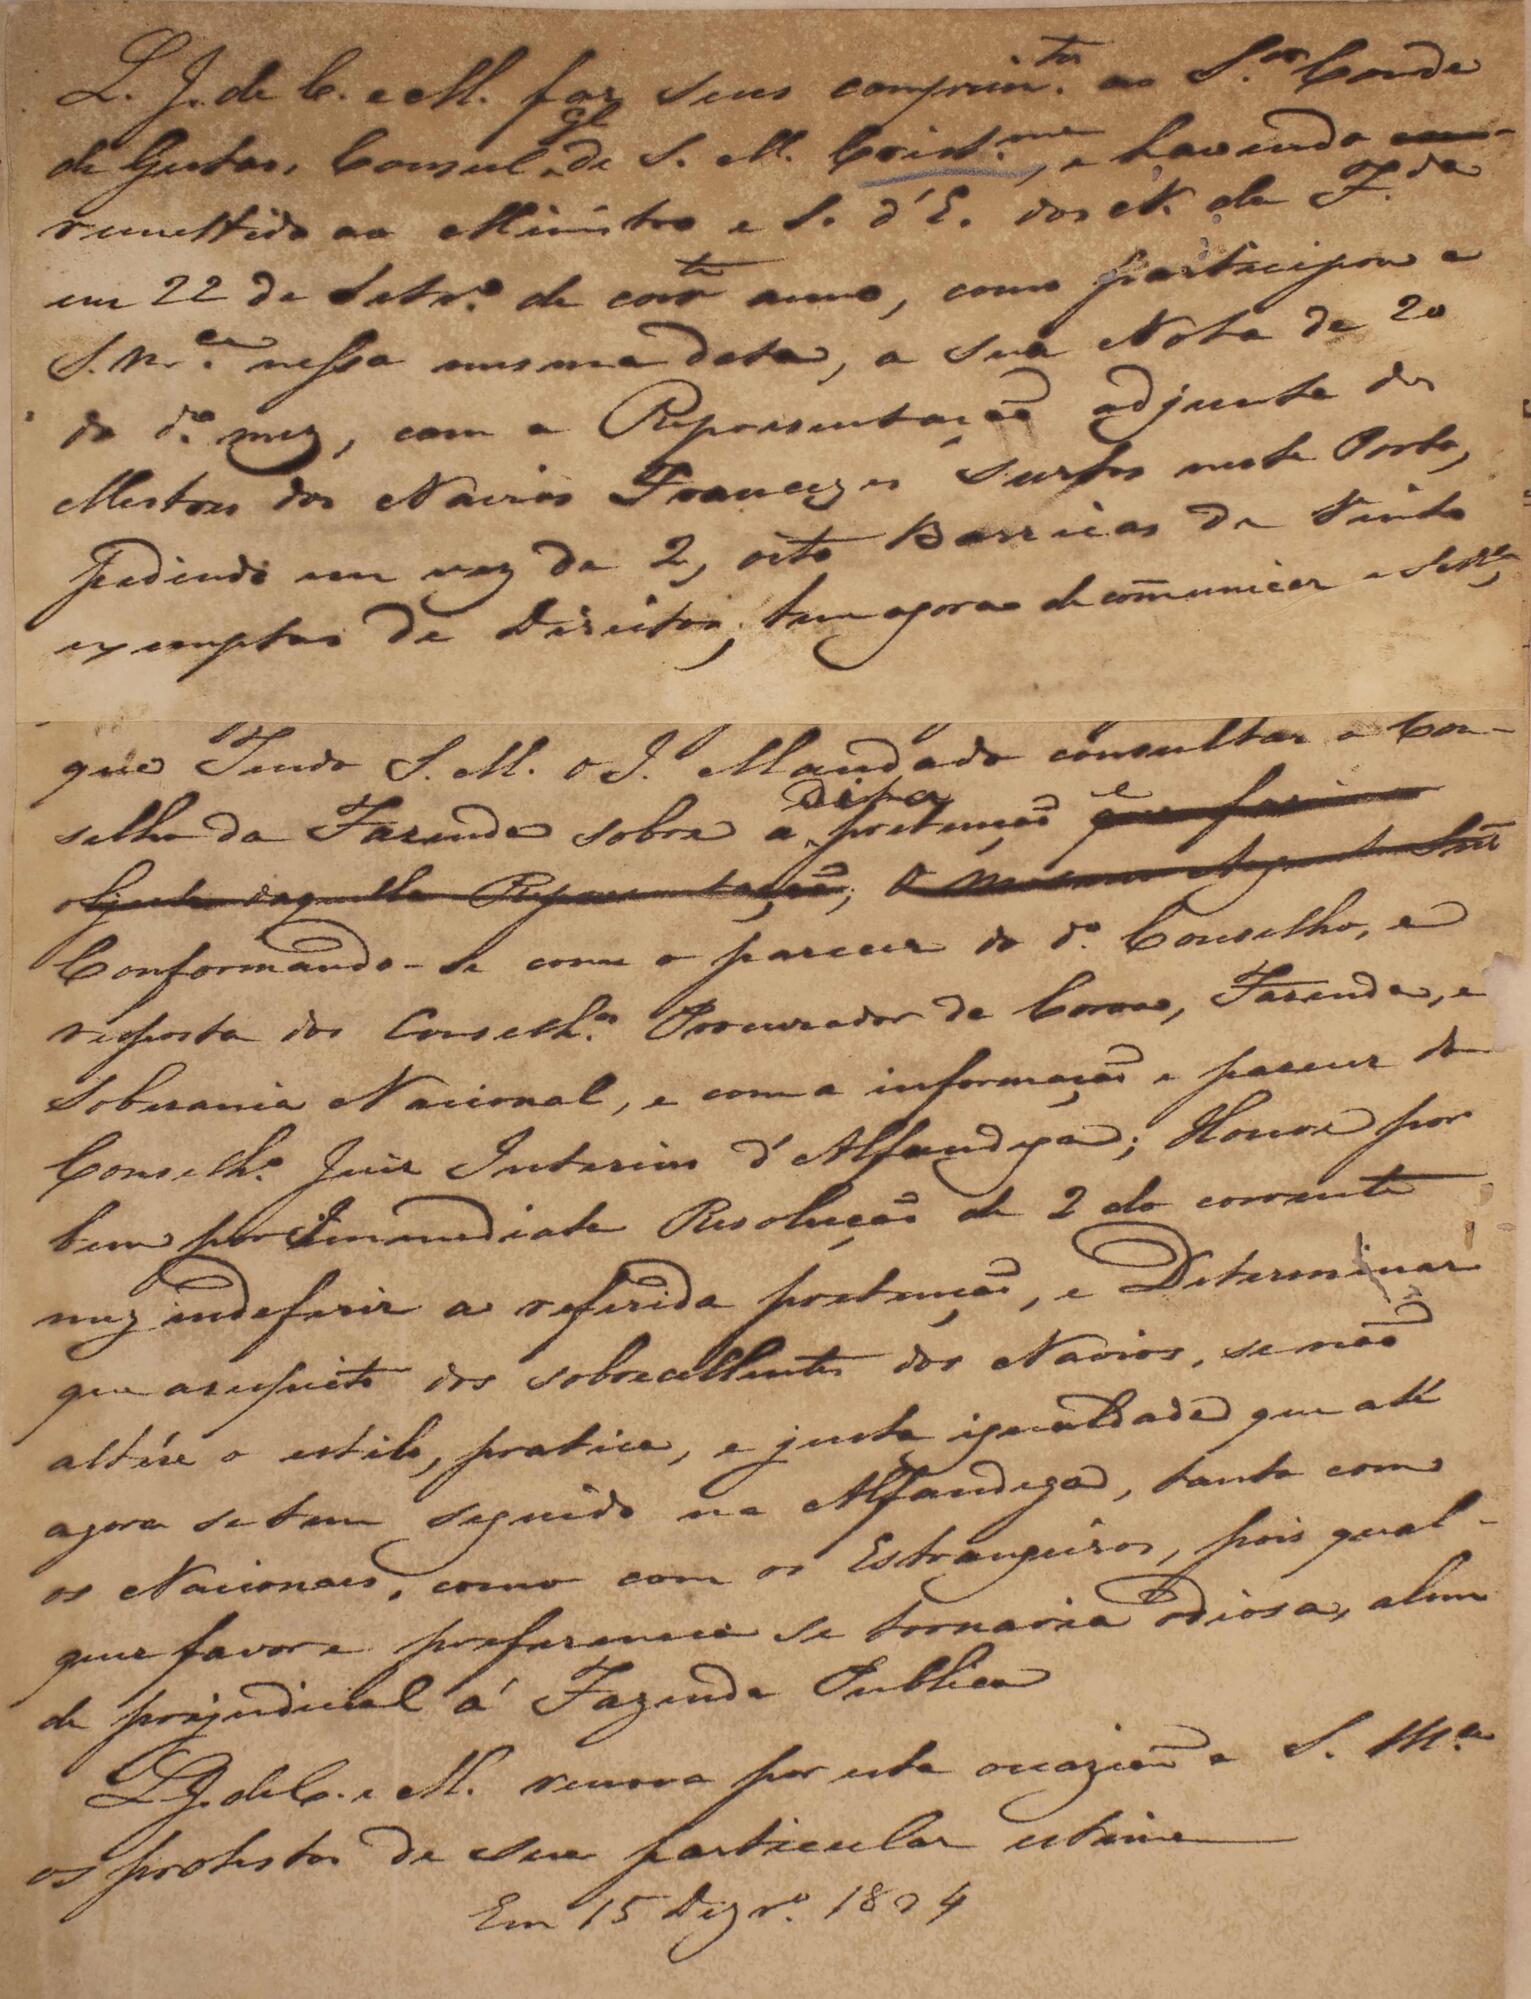 L. J. de C. e M. faz seus comprim.tos ao S.or Conde
de Gestas, Consul gl de S. M. Crist.ma, e havendo
remettido ao Ministro e S. d'E. dos N. da F.da
em 22 de Setr.o do corr.te anno, como participou a
S. M.ce nessa mesma data, a sua Nota de 20
do d.o mez, com a Representação adjunta dos
Mestres dos Navios Francezes surtos neste Porto,
pedindo em vez de 2, oito Barricas de Vinho
exemptas de Direitos; tem agora de comunicar a
que Tendo S. M. O I. Mandado consultar o Con-
selho da Fazenda sobre a dita pretenção que fazia o
objecto daquella Representação; O mesmo Augusto Snr
Conformando-se com o parecer do d.o Conselho, e
resposta dos Conselh.os Procurador da Coroa, Fazenda, e
Soberania Nacional, e com a informação e parecer do
Conselh.o Juiz Interino d'Alfandega; Houve por
bem por Immediata Resolução de 2 do corrente
mez indeferir a referida pretenção, e Determinar
que a respeito dos sobrecellentes dos Navios, se não
altére o estilo, pratica, e justa igualdade que até
agora se tem seguido na Alfandega, tanto com
os Nacionaes, como com os Estrangeiros, pois qual-
quer favor e preferencia se tornaria odiosa, alem
de prejudicial á Fazenda Publica
L. J. de C. e M. renova por esta occazião a S. M.ce
os protestos de sua particular estima
Em 15 Dezr.o 1824